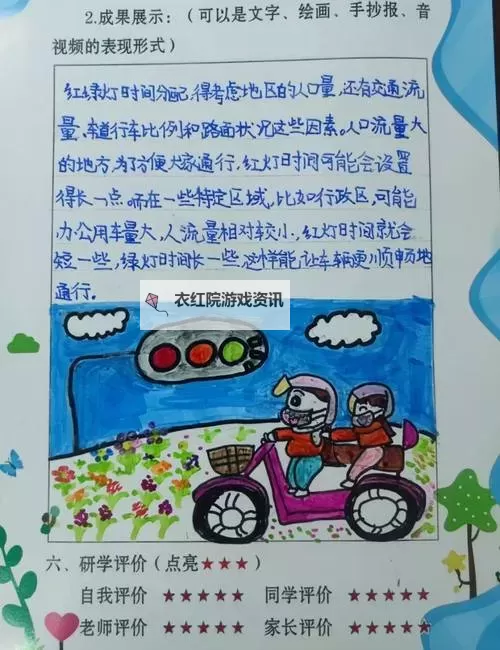 2.成果展示：（可以是文字、绘画、手抄报、音
视频的表现形式）
红绿灯时间分配，得考虑地区的人口量，还有交通流
量，车道行车比例和路面状况这些因素。人口流量大
的地方，为了方便大家通行，红灯时间可能会设置
得长一点。而在一些特定区域，比如行政区，可能
办公用车量大，人流量相对较小，红灯时间就会
短一些，绿灯时间长一些，这样能让车辆更顺畅地
通行。
衣红院游戏资讯
六、研学评价（点亮★★★）
自我评价 ★★★★★ 同学评价 ★★★★★
老师评价 ★★★★★ 家长评价 ★★★★★